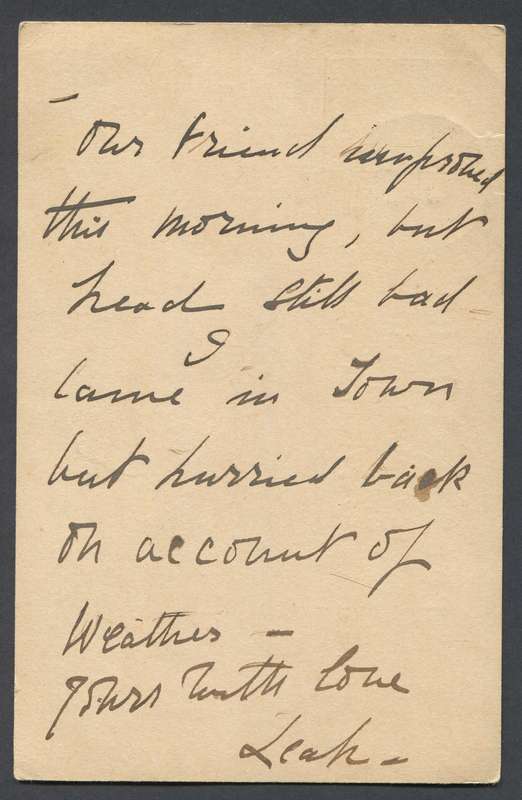 Our friend improved
this morning, but
head still bad
I
came in Town
but hurried back
on account of
Weather –
yours with love
Leah –